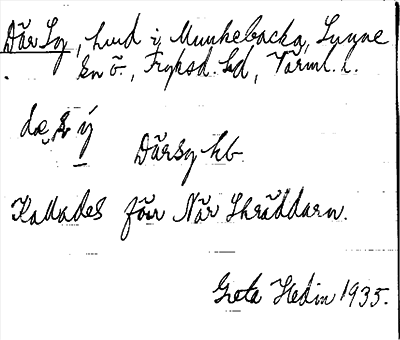 Där Sy, hvid i Munkebacka, Lysne
sn ö., Fryksd. hd, Värml. l.
dæ, s ý
Därsy hb.
Kallades förr När Skräddarn.
Greta Hedin 1935.